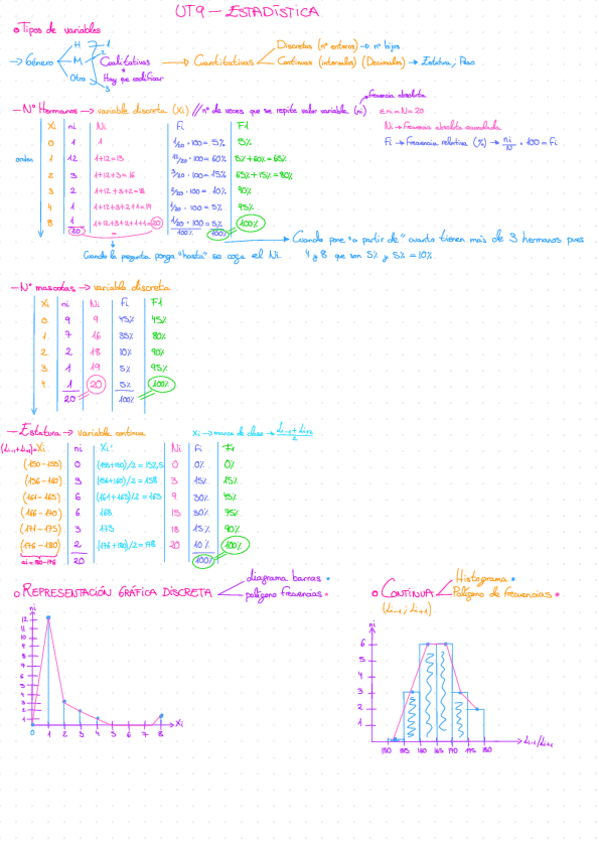 UT9 – ESTADÍSTICA
o Tipos de variables
→ Género
H → 1
M → 2
Otro → 3
Cualitativas
Hay que codificar
→ Cuantitativas
Discretas (nº enteros) → nº hijos
Continuas (intervalos) (Decimales) → Estatura, Peso
– Nº Hermanos → variable discreta (Xi) // nº de veces que se repite valor variable (ni) → frecuencia absoluta
Σni = N = 20
Ni → Frecuencia absoluta acumulada
Fi → Frecuencia relativa (%) → ni/N · 100 = Fi
Xi ni Ni Fi F1
0 1 1 1/20 · 100 = 5% 5%
1 12 1+12=13 12/20 · 100 = 60% 5%+60%=65%
2 3 1+12+3=16 3/20 · 100 = 15% 65%+15%=80%
3 2 1+12+3+2=18 2/20 · 100 = 10% 90%
4 1 1+12+3+2+1=19 1/20 · 100 = 5% 95%
8 1 1+12+3+2+1+1=20 1/20 · 100 = 5% 100%
20 100% 100%
→ Cuando pone "a partir de" cuanto tienen más de 3 hermanos pues
4 y 8 que son 5% y 5% = 10%
Cuando la pregunta ponga "hasta" se coge el Ni.
– Nº mascotas → variable discreta
Xi ni Ni Fi F1
0 9 9 45% 45%
1 7 16 35% 80%
2 2 18 10% 90%
3 1 19 5% 95%
4 1 20 5% 100%
20 100%
– Estatura → variable continua
Xi → marca de clase →
Xi ni Xi' Ni Fi F1
(150-155) 0 (155+150)/2 = 152,5 0 0% 0%
(156-160) 3 (156+160)/2 = 158 3 15% 15%
(161-165) 6 (161+165)/2 = 163 9 30% 45%
(166-170) 6 168 15 30% 75%
(171-175) 3 173 18 15% 90%
(176-180) 2 (176+180)/2 = 178 20 10% 100%
20 100%
o REPRESENTACIÓN GRÁFICA DISCRETA
diagrama barras
polígono frecuencias
o CONTINUA
Histograma
Polígono de frecuencias
(Li-1 ; Li+1)
ni
12
11
10
9
8
7
6
5
4
3
2
1
0 1 2 3 4 5 6 7 8
Xi
ni
6
5
4
3
2
1
150 155 160 165 170 175 180
Li-1/Li+1